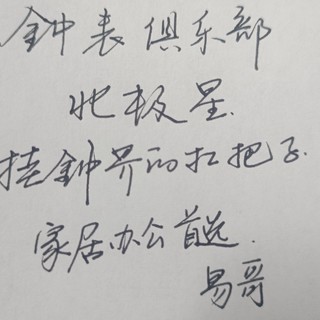 鈡表俱乐部
北极星.
挂鈡界的扛把子.
家居办公首选.
易哥